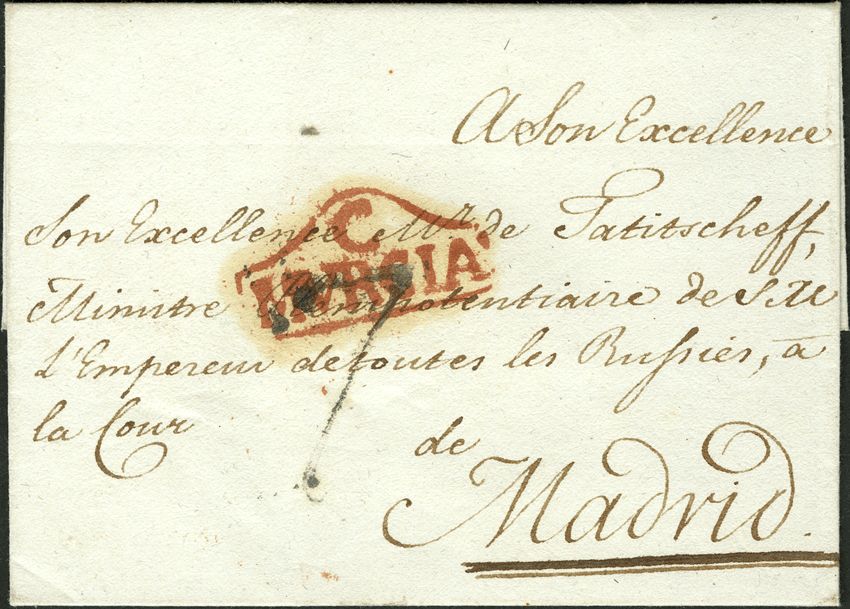 A Son Excellence
Son Excellence Mr. de Tatitscheff,
Ministre Plenipotentiaire de S. M
L'Empereur de toutes les Russies, à
la Cour
de
Madrid.
C
MURSIA
7